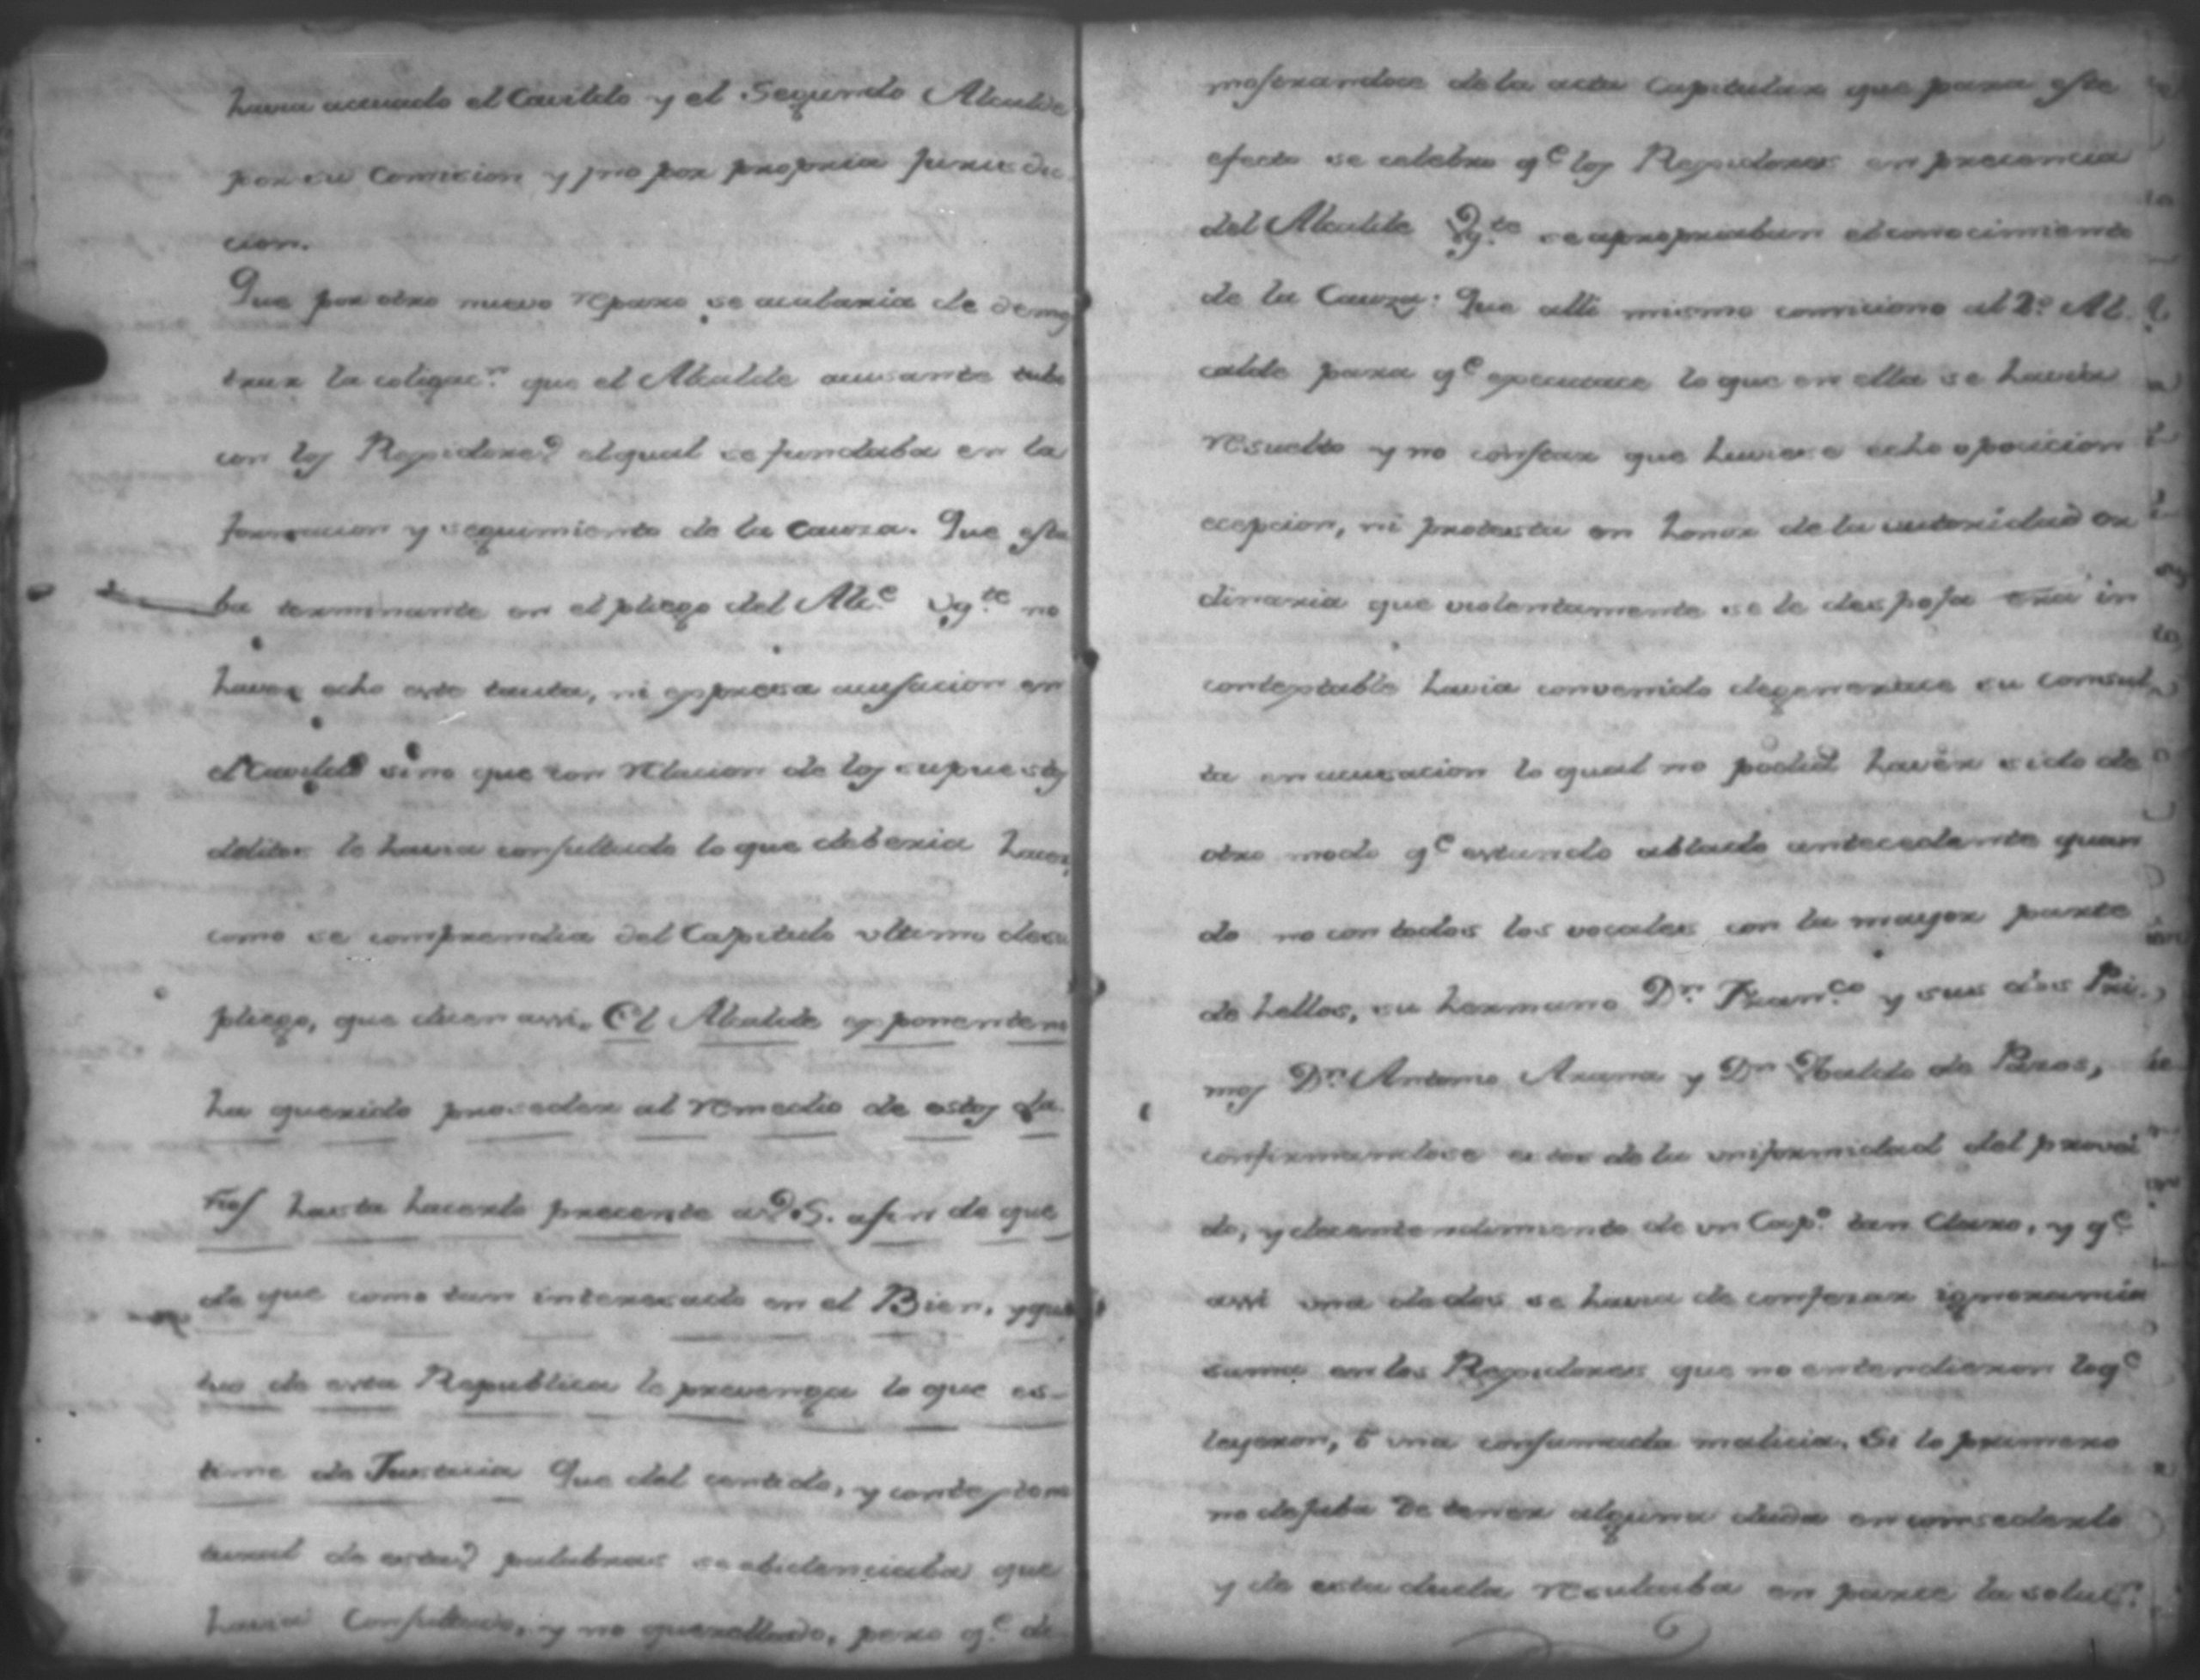 havia acusado el Cavildo y el Segundo Alcalde
por su Comicion y no por propria Jurisdic
cion.
Que por otro nuevo reparo se acabaria de demos
trar la coligac.n que el Alcalde acusante tubo
con los Regidores el qual se fundaba en la
formacion y seguimiento de la Cauza. Que esta
ba terminante en el pliego del Alc.e no
haver echo este tanta, ni expresa acusacion en
el Cavildo sino que con relacion de los supuestos
delitos le havia consultado lo que deberia hacer
como se comprendia del Capitulo ultimo desu
pliego, que dicen assi. El Alcalde exponente no
ha querido proceder al remedio de estos da
ños hasta hacerlo precente a V.S. afin de que
de que como tan interesado en el Bien, y quie
tud de esta Republica le prevenga lo que es-
time de Justicia Que del centido, y contexto na
tural de estas palabras se evidenciaba que
havia Consultado, y no querellado, pero q.e de
mostrandose de la acta Capitular que para este
efecto se celebro q.e los Regidores en precencia
del Alcalde se apropriaban el conocimiento
de la Cauza: Que alli mismo comiciono al 2.o Al
calde para q.e executace lo que en ella se havia
resuelto y no constar que huviese echo oposicion
ecepcion, ni protesta en honor de la autoridad or
dinaria que violentamente se le despoja era in
contextable havia convenido degenerace su consul
ta en acusacion lo qual no podia haver sido de
otro modo q.e estando ablado antecedente quan
do no con todos los vocales con la mayor parte
de hellos, su hermano D.n Fran.co y sus dos Pri
mos D.n Antonio Arana y D.n Ubaldo de Pazos,
confirmandose esto de la uniformidad del provei
do, y decentendimiento de un Cap.o tan Claro, y q.e
assi una de dos se havia de confesar ignorancia
suma en los Regidores que no entendieron lo q.e
leyeron, ó una consumada malicia. Si lo primero
no dejaba de tener alguna duda en concederlo
y de esta duda resultaba en parte la soluc.n